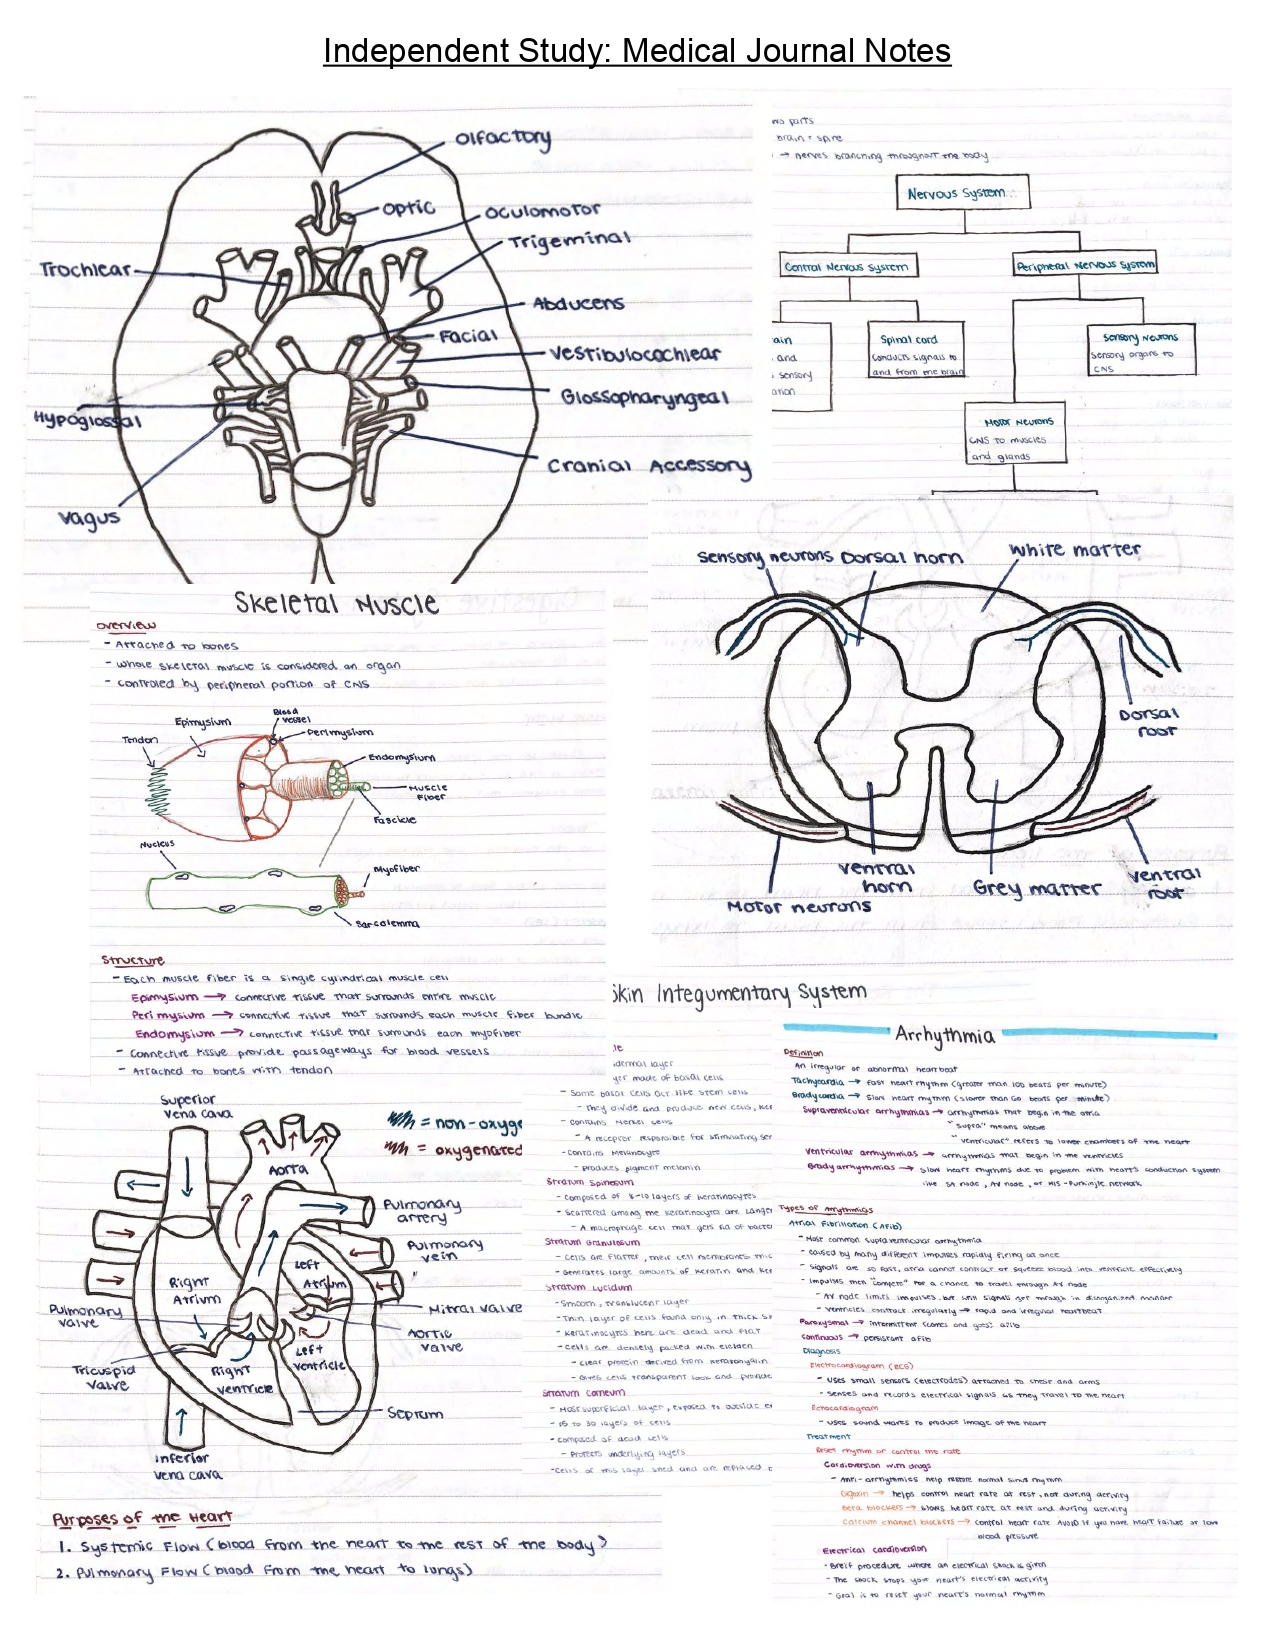 Independent Study: Medical Journal Notes
Olfactory
Optic
Oculomotor
Trigeminal
Trochlear
Abducens
Facial
Vestibulocochlear
Glossopharyngeal
Hypoglossal
Cranial Accessory
Vagus
wo parts
brain + spine
→ nerves branching throughout the body
Nervous System
Central Nervous System
Peripheral Nervous System
ain
and
sensory
ation
Spinal cord
conducts signals to
and from the brain
Sensory Neurons
Sensory organs to
CNS
Motor Neurons
CNS to muscles
and glands
Sensory neurons
Dorsal horn
White matter
Dorsal
root
ventral
horn
Grey matter
Ventral
root
Motor neurons
Skeletal Muscle
Overview
- Attached to bones
- whole skeletal muscle is considered an organ
- controled by peripheral portion of CNS
Blood
vessel
Epimysium
Perimysium
Tendon
Endomysium
Muscle
Fiber
Fascicle
Nucleus
Myofiber
Sarcolemma
Structure
- Each muscle fiber is a single cylindrical muscle cell
Epimysium → connective tissue that surrounds entire muscle
Peri mysium → connective tissue that surrounds each muscle fiber bundle
Endomysium → connective tissue that surrounds each myofiber
- Connective tissue provide passageways for blood vessels
- Attached to bones with tendon
Superior
vena cava
= non-oxyge
= oxygenated
Aorta
Pulmonary
artery
Pulmonary
vein
Left
Atrium
Right
Atrium
Pulmonary
valve
Mitral valve
Aortic
valve
Left
ventricle
Tricuspid
valve
Right
ventricle
Septum
Inferior
vena cava
Purposes of the Heart
1. Systemic Flow (blood from the heart to the rest of the body)
2. Pulmonary Flow (blood from the heart to lungs)
Skin Integumentary System
le
idermal layer
yer made of basal cells
- Some basal cells act like stem cells
- They divide and produce new cells, ker
- contains Merkel cells
- A receptor responsible for stimulating ser
- contains Melanocyte
- produces pigment melanin
Stratum Spinosum
- composed of 8-10 layers of keratinocytes
- scattered among the keratinocytes are Langer
- A macrophage cell that gets rid of bacter
Stratum Granulosum
- Cells are flatter, their cell membranes thic
- Generates large amounts of keratin and ker
Stratum Lucidum
- Smooth, translucent layer
- Thin layer of cells found only in thick sk
- keratinocytes here are dead and flat
- cells are densely packed with eleiden
- clear protein derived from keratohyalin
- Gives cells transparent look and provide
Stratum Corneum
- Most superficial layer, exposed to outside en
- 15 to 30 layers of cells
- composed of dead cells
- Protects underlying layers
- Cells of this layer shed and are replaced
Arrhythmia
Definition
An irregular or abnormal heartbeat
Tachycardia → fast heart rhythm (greater than 100 beats per minute)
Bradycardia → Slow heart rhythm (slower than 60 beats per minute)
Supraventricular arrhythmias → arrhythmias that begin in the atria
"Supra" means above
"Ventricular" refers to lower chambers of the heart
Ventricular arrhythmias → arrhythmias that begin in the ventricles
Brady arrhythmias → slow heart rhythms due to problem with heart's conduction system
like SA node, AV node, or HIS-Purkinje network
Types of Arrhythmias
Atrial Fibrillation (AFib)
- Most common supraventricular arrhythmia
- caused by many different impulses rapidly firing at once
- Signals are so fast, atria cannot contract or squeeze blood into ventricle effectively
- Impulses then "compete" for a chance to travel through AV node
- AV node limits impulses, but still signals get through in disorganized manner
- Ventricles contract irregularly → rapid and irregular heartbeat
Paroxysmal → intermittent (comes and goes) afib
Continuous → persistant afib
Diagnosis
Electrocardiogram (ECG)
- uses small sensors (electrodes) attatched to chest and arms
- senses and records electrical signals as they travel to the heart
Echocardiogram
- uses sound waves to produce image of the heart
Treatment
Reset rhythm or control the rate
Cardioversion with drugs
- Anti-arrhythmics help restore normal sinus rhythm
Digoxin → helps control heart rate at rest, not during activity
Beta blockers → slows heart rate at rest and during activity
Calcium channel blockers → control heart rate AVOID if you have heart failure or low
blood pressure
Electrical cardioversion
- Breif procedure where an electrical shock is given
- The shock stops your heart's electrical activity
- Goal is to reset your heart's normal rhythm